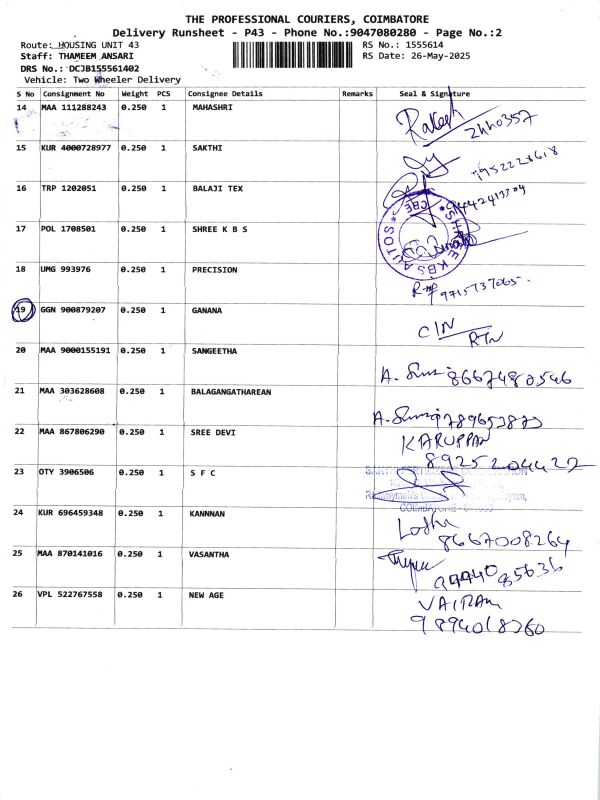 THE PROFESSIONAL COURIERS, COIMBATORE
Delivery Runsheet - P43 - Phone No.:9047080280 - Page No.:2
Route: HOUSING UNIT 43
RS No.: 1555614
Staff: THAMEEM ANSARI
RS Date: 26-May-2025
DRS No.: DCJB155561402
Vehicle: Two Wheeler Delivery
S No Consignment No Weight PCS Consignee Details Remarks Seal & Signature
14 MAA 111288243 0.250 1 MAHASHRI
Rakesh
15 KUR 4000728977 0.250 1 SAKTHI
7952228618
16 TRP 1202051 0.250 1 BALAJI TEX
17 POL 1708501 0.250 1 SHREE K B S
SHREE KBS AUTOS
CBE
18 UMG 993976 0.250 1 PRECISION
9715737065
19 GGN 900879207 0.250 1 GANANA
CIN
RTN
20 MAA 9000155191 0.250 1 SANGEETHA
8667480546
21 MAA 303628608 0.250 1 BALAGANGATHAREAN
9789653873
22 MAA 867806290 0.250 1 SREE DEVI
KARUPPAN
8925204422
23 OTY 3906506 0.250 1 S F C
COIMBATORE
24 KUR 696459348 0.250 1 KANNNAN
8667008264
25 MAA 870141016 0.250 1 VASANTHA
9444085636
26 VPL 522767558 0.250 1 NEW AGE
VAIRAM
9894018260